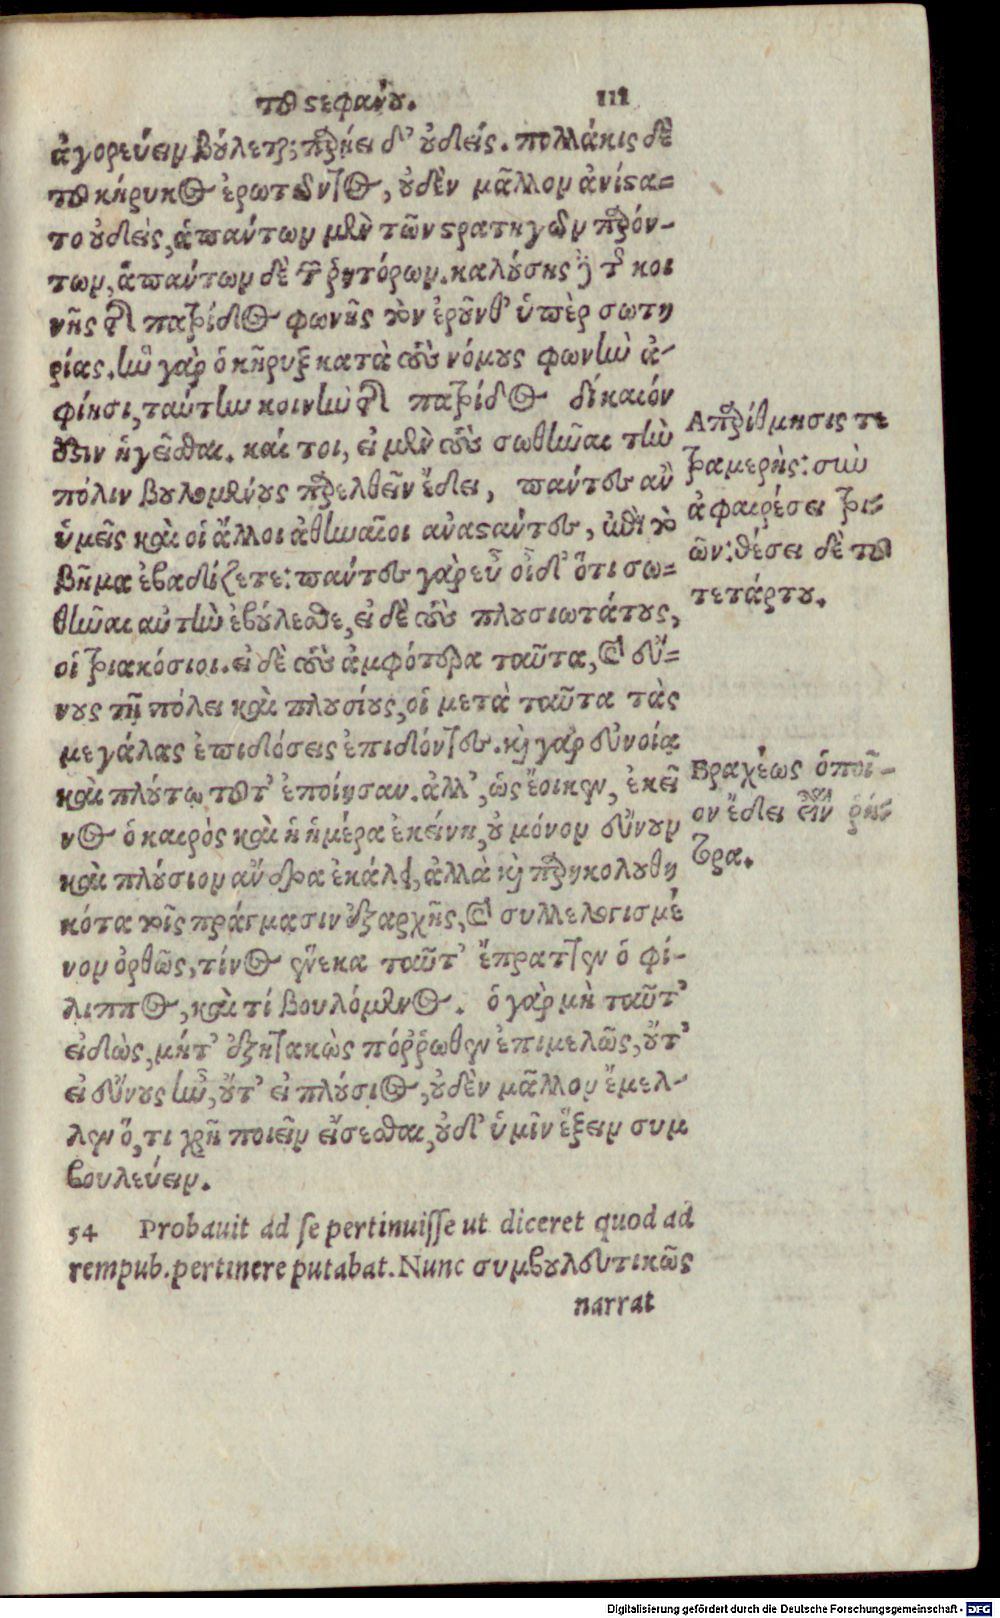 τοῦ στεφάνου. 111
ἀγορεύειν βούλεται; παρῄει δ' οὐδείς. πολλάκις δὲ
τοῦ κήρυκος ἐρωτῶντος, οὐδὲν μᾶλλον ἀνίστα=
το οὐδεὶς, ἁπάντων μὲν τῶν στρατηγῶν παρόν-
των, ἁπάντων δὲ τῶν ῥητόρων. καλούσης δὲ τῆς κοι
νῆς τῆς πατρίδος φωνῆς τὸν ἐροῦνθ' ὑπὲρ σωτη
ρίας. ἣν γὰρ ὁ κῆρυξ κατὰ τοὺς νόμους φωνὴν ἀ-
φίησι, ταύτην κοινὴν τῆς πατρίδος δίκαιόν
ἐστιν ἡγεῖσθαι. καί τοι, εἰ μὲν τοὺς σωθῆναι τὴν
πόλιν βουλομένους παρελθεῖν ἔδει, πάντες ἂν
ὑμεῖς καὶ οἱ ἄλλοι ἀθηναῖοι ἀναστάντες, ἐπὶ τὸ
βῆμα ἐβαδίζετε: πάντες γὰρ εὖ οἶδ' ὅτι σω=
θῆναι αὐτὴν ἐβούλεσθε, εἰ δὲ τοὺς πλουσιωτάτους,
οἱ τριακόσιοι. εἰ δὲ τοὺς ἀμφότερα ταῦτα, καὶ εὔ=
νους τῇ πόλει καὶ πλουσίους, οἱ μετὰ ταῦτα τὰς
μεγάλας ἐπιδόσεις ἐπιδόντες. καὶ γὰρ εὐνοίᾳ
καὶ πλούτῳ τοῦτ' ἐποίησαν. ἀλλ', ὡς ἔοικεν, ἐκεῖ
νος ὁ καιρὸς καὶ ἡ ἡμέρα ἐκείνη, οὐ μόνον εὔνουν
καὶ πλούσιον ἄνδρα ἐκάλει, ἀλλὰ καὶ παρηκολουθη
κότα τοῖς πράγμασιν ἐξαρχῆς, καὶ συλλελογισμέ
νον ὀρθῶς, τίνος ἕνεκα ταῦτ' ἔπραττεν ὁ φί-
λιππος, καὶ τί βουλόμενος. ὁ γὰρ μὴ ταῦτ'
εἰδὼς, μήτ' ἐξητακὼς πόῤῥωθεν ἐπιμελῶς, οὔτ'
εἰ εὔνους ἦν, οὔτ' εἰ πλούσιος, οὐδὲν μᾶλλον ἔμελ-
λεν ὅ, τι χρὴ ποιεῖν εἴσεσθαι, οὐδ' ὑμῖν ἕξειν συμ
βουλεύειν.
54 Probauit ad se pertinuisse ut diceret quod ad
rempub. pertinere putabat. Nunc συμβουλευτικῶς
narrat
Ἀπαρίθμησις τε
τραμερὴς: σὺν
ἀφαιρέσει τρι-
ῶν: θέσει δὲ τοῦ
τετάρτου.
Βραχέως ὁποῖ-
ον ἔδει εἶναι ῥή-
τορα.
Digitalisierung gefördert durch die Deutsche Forschungsgemeinschaft - DFG